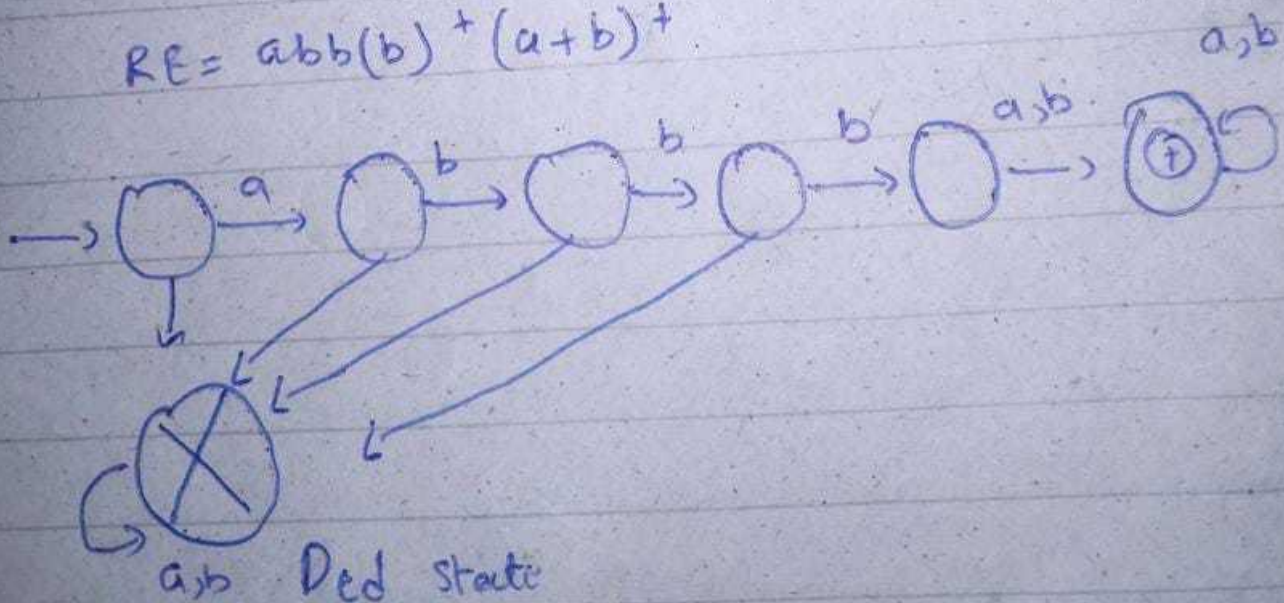 RE = abb(b)⁺ (a+b)⁺.
a,b
a b b b a,b +
a,b Ded state